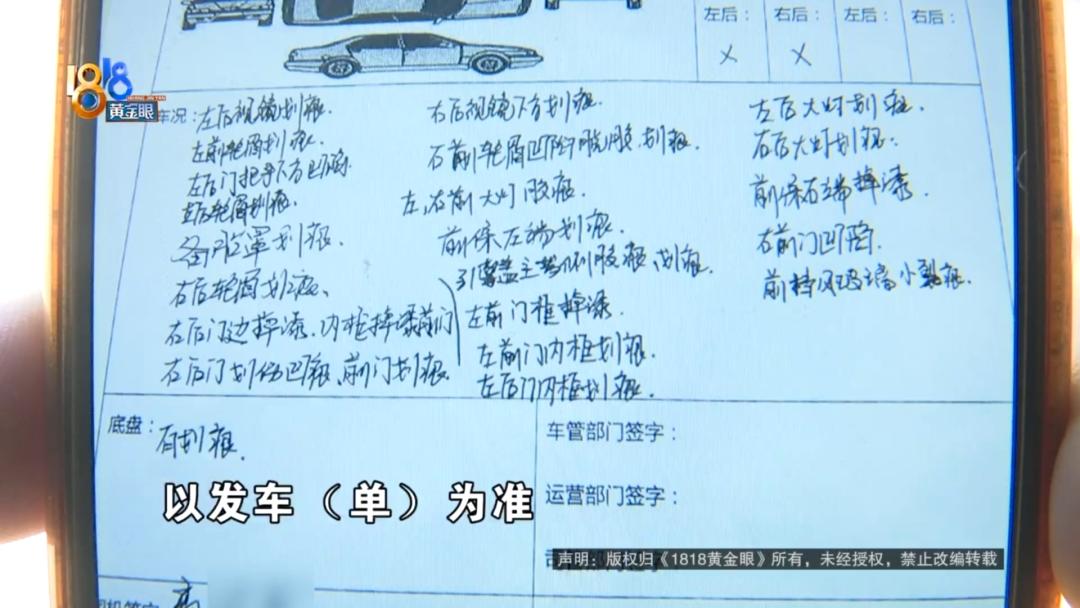 左后： 右后： 左后： 右后：
× ×
1818
黄金眼
车况：左后视镜划痕.
左前轮眉划痕.
左后门把手下方凹陷.
左后轮眉划痕.
备胎罩划痕.
右后轮眉划痕、
右后门边掉漆.内框掉漆前门
右后门划伤凹痕、前门划痕
右后视镜下方划痕.
右前轮眉凹陷脱胶.划痕.
左、右前大灯胶痕
前保左端划痕.
引擎盖主驾侧胶痕、划痕.
左前门框掉漆.
左前门内框划痕.
左后门内框划痕.
左后大灯划痕
右后大灯划痕.
前保右端掉漆.
右前门凹陷.
前挡风玻璃小裂痕.
底盘：有划痕.
车管部门签字：
运营部门签字：
以发车（单）为准
声明：版权归《1818黄金眼》所有，未经授权，禁止改编转载